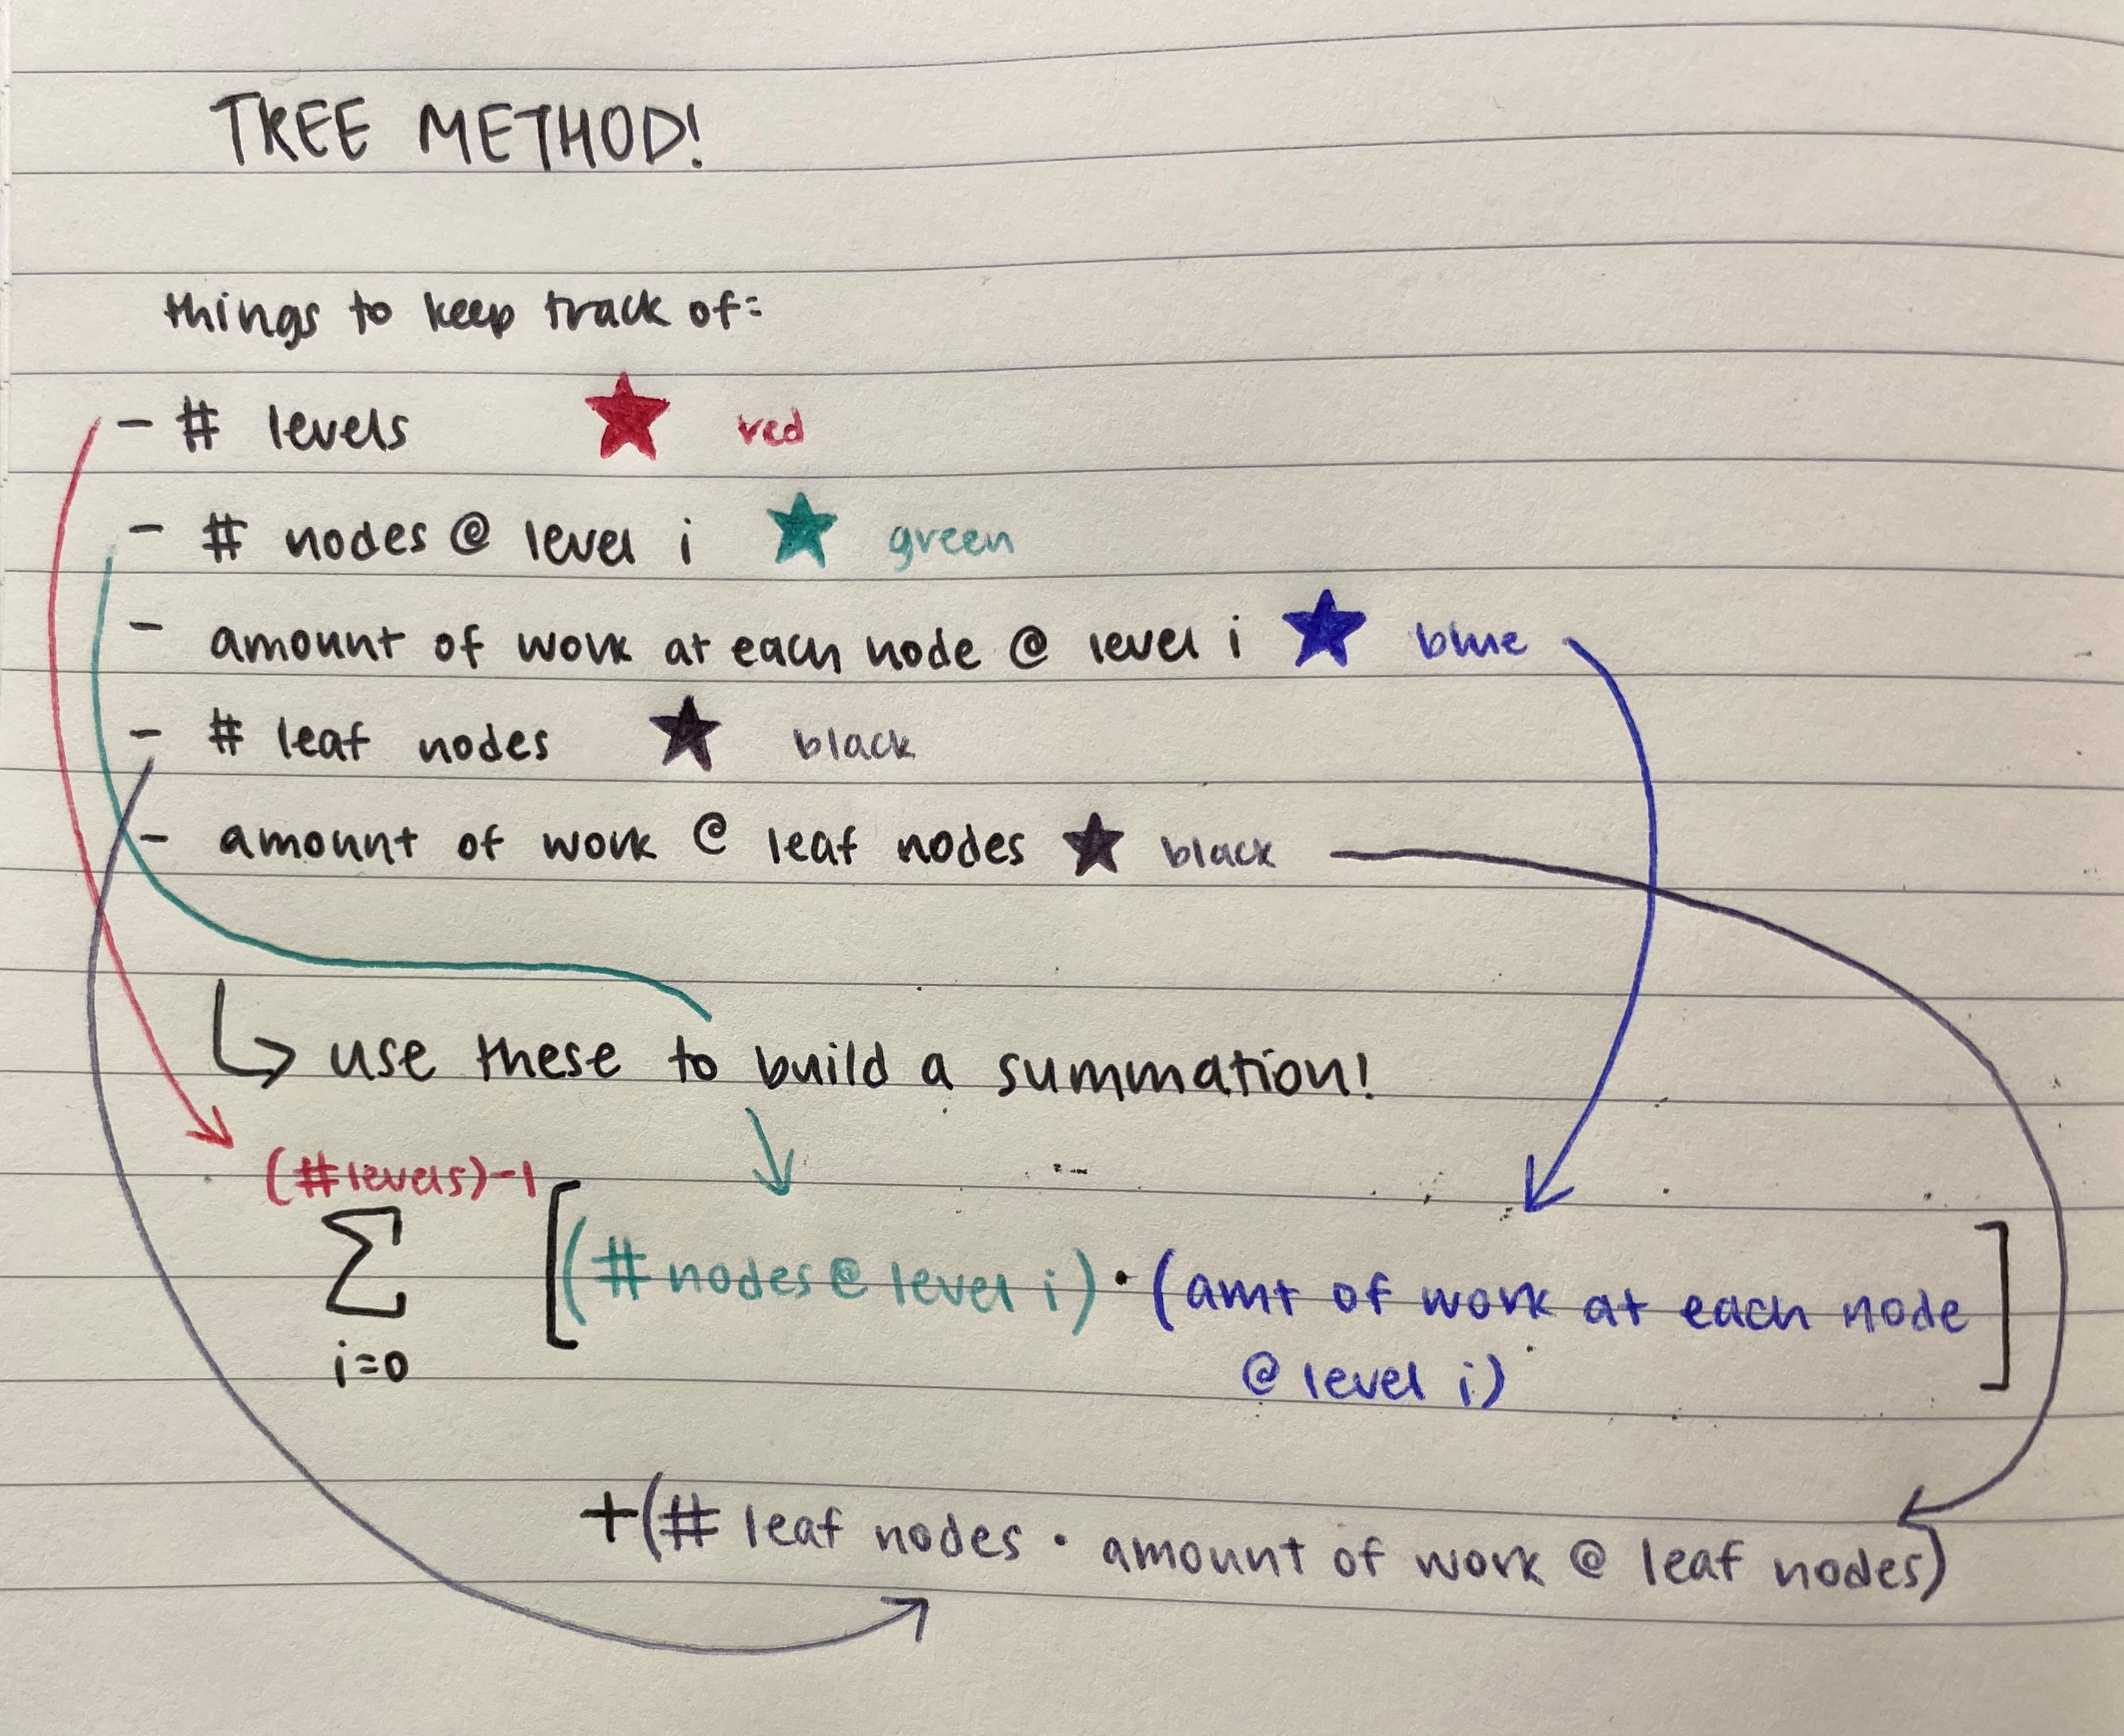 TREE METHOD!
things to keep track of:
- # levels ★ red
- # nodes @ level i ★ green
- amount of work at each node @ level i ★ blue
- # leaf nodes ★ black
- amount of work @ leaf nodes ★ black
↳ use these to build a summation!
(#levels)-1
∑ [(#nodes@level i) · (amt of work at each node
i=0 @ level i)]
+(# leaf nodes · amount of work @ leaf nodes)